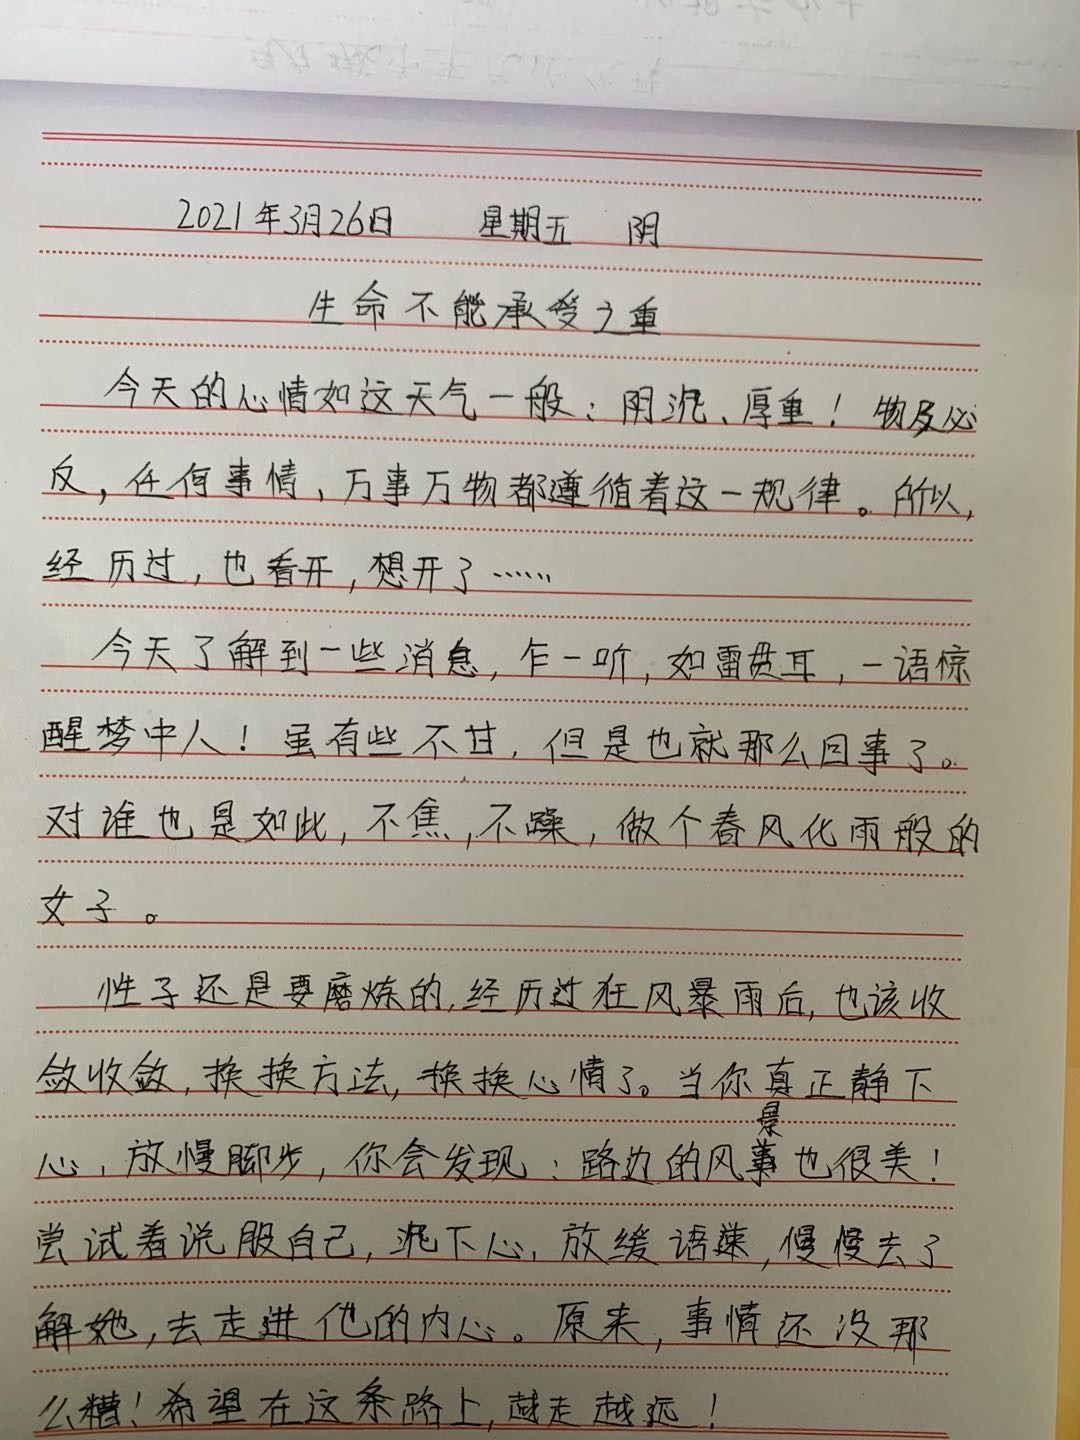 2021年3月26日 星期五 阴
生命不能承受之重
今天的心情如这天气一般：阴沉、厚重！物及必
反，任何事情、万事万物都遵循着这一规律。所以，
经历过，也看开，想开了……
今天了解到一些消息，乍一听，如雷贯耳，一语惊
醒梦中人！虽有些不甘，但是也就那么回事了。
对谁也是如此，不焦，不躁，做个春风化雨般的
女子。
性子还是要磨炼的，经历过狂风暴雨后，也该收
敛收敛，换换方法，换换心情了。当你真正静下
心，放慢脚步，你会发现：路边的风景也很美！
尝试着说服自己，沉下心，放缓语速，慢慢去了
解她，去走进他的内心。原来，事情还没那
么糟！希望在这条路上，越走越远！